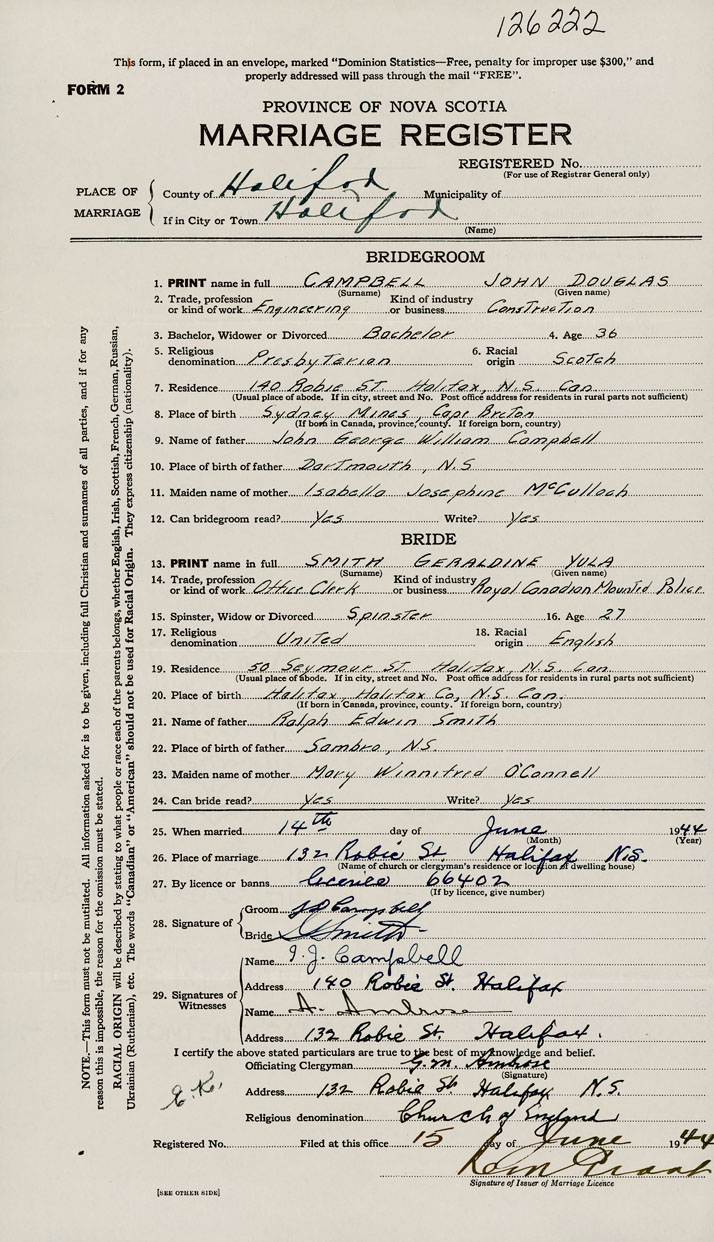 126222
This form, if placed in an envelope, marked "Dominion Statistics—Free, penalty for improper use $300," and
properly addressed will pass through the mail "FREE".
FORM 2
PROVINCE OF NOVA SCOTIA
MARRIAGE REGISTER
REGISTERED No.
(For use of Registrar General only)
PLACE OF MARRIAGE
County of Halifax Municipality of
If in City or Town Halifax
(Name)
BRIDEGROOM
1. PRINT name in full CAMPBELL JOHN DOUGLAS
(Surname) (Given name)
2. Trade, profession or kind of work Engineering Kind of industry or business Construction
3. Bachelor, Widower or Divorced Bachelor 4. Age 36
5. Religious denomination Presbyterian 6. Racial origin Scotch
7. Residence 140 Robie ST. Halifax, N.S. Can.
(Usual place of abode. If in city, street and No. Post office address for residents in rural parts not sufficient)
8. Place of birth Sydney Mines, Cape Breton
(If born in Canada, province, county. If foreign born, country)
9. Name of father John George William Campbell
10. Place of birth of father Dartmouth, N.S
11. Maiden name of mother Isabella Josephine McCulloch
12. Can bridegroom read? Yes Write? Yes
BRIDE
13. PRINT name in full SMITH GERALDINE YULA
(Surname) (Given name)
14. Trade, profession or kind of work Office Clerk Kind of industry or business Royal Canadian Mounted Police
15. Spinster, Widow or Divorced Spinster 16. Age 27
17. Religious denomination United 18. Racial origin English
19. Residence 50 Seymour ST. Halifax, N.S. Can
(Usual place of abode. If in city, street and No. Post office address for residents in rural parts not sufficient)
20. Place of birth Halifax, Halifax Co, N.S. Can.
(If born in Canada, province, county. If foreign born, country)
21. Name of father Ralph Edwin Smith
22. Place of birth of father Sambro, N.S.
23. Maiden name of mother Mary Winnifred O'Connell
24. Can bride read? Yes Write? Yes
25. When married 14th day of June 1944
(Month) (Year)
26. Place of marriage 132 Robie St. Halifax N.S.
(Name of church or clergyman's residence or location of dwelling house)
27. By licence or banns licence 66402
(If by licence, give number)
28. Signature of
Groom J D Campbell
Bride G Smith
29. Signatures of Witnesses
Name I. J. Campbell
Address 140 Robie St. Halifax
Name A. Ambrose
Address 132 Robie St. Halifax.
I certify the above stated particulars are true to the best of my knowledge and belief.
Officiating Clergyman G.M. Ambrose
(Signature)
Address 132 Robie St. Halifax N.S.
Religious denomination Church of England
Registered No. Filed at this office 15 day of June 1944
Signature of Issuer of Marriage Licence
[SEE OTHER SIDE]
NOTE.—This form must not be mutilated. All information asked for is to be given, including full Christian and surnames of all parties, and if for any
reason this is impossible, the reason for the omission must be stated.
RACIAL ORIGIN will be described by stating to what people or race each of the parents belongs, whether English, Irish, Scottish, French, German, Russian,
Ukrainian (Ruthenian), etc. The words "Canadian" or "American" should not be used for Racial Origin. They express citizenship (nationality).